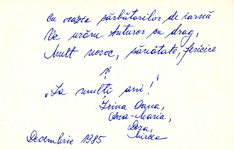 Cu ocazia sărbătorilor de iarnă
Vă urăm tuturor cu drag,
Mult noroc, sănătate, fericire
și
"La mulți ani!"
Irina Oana,
Ana-Maria,
Mircea
Decembrie 1985